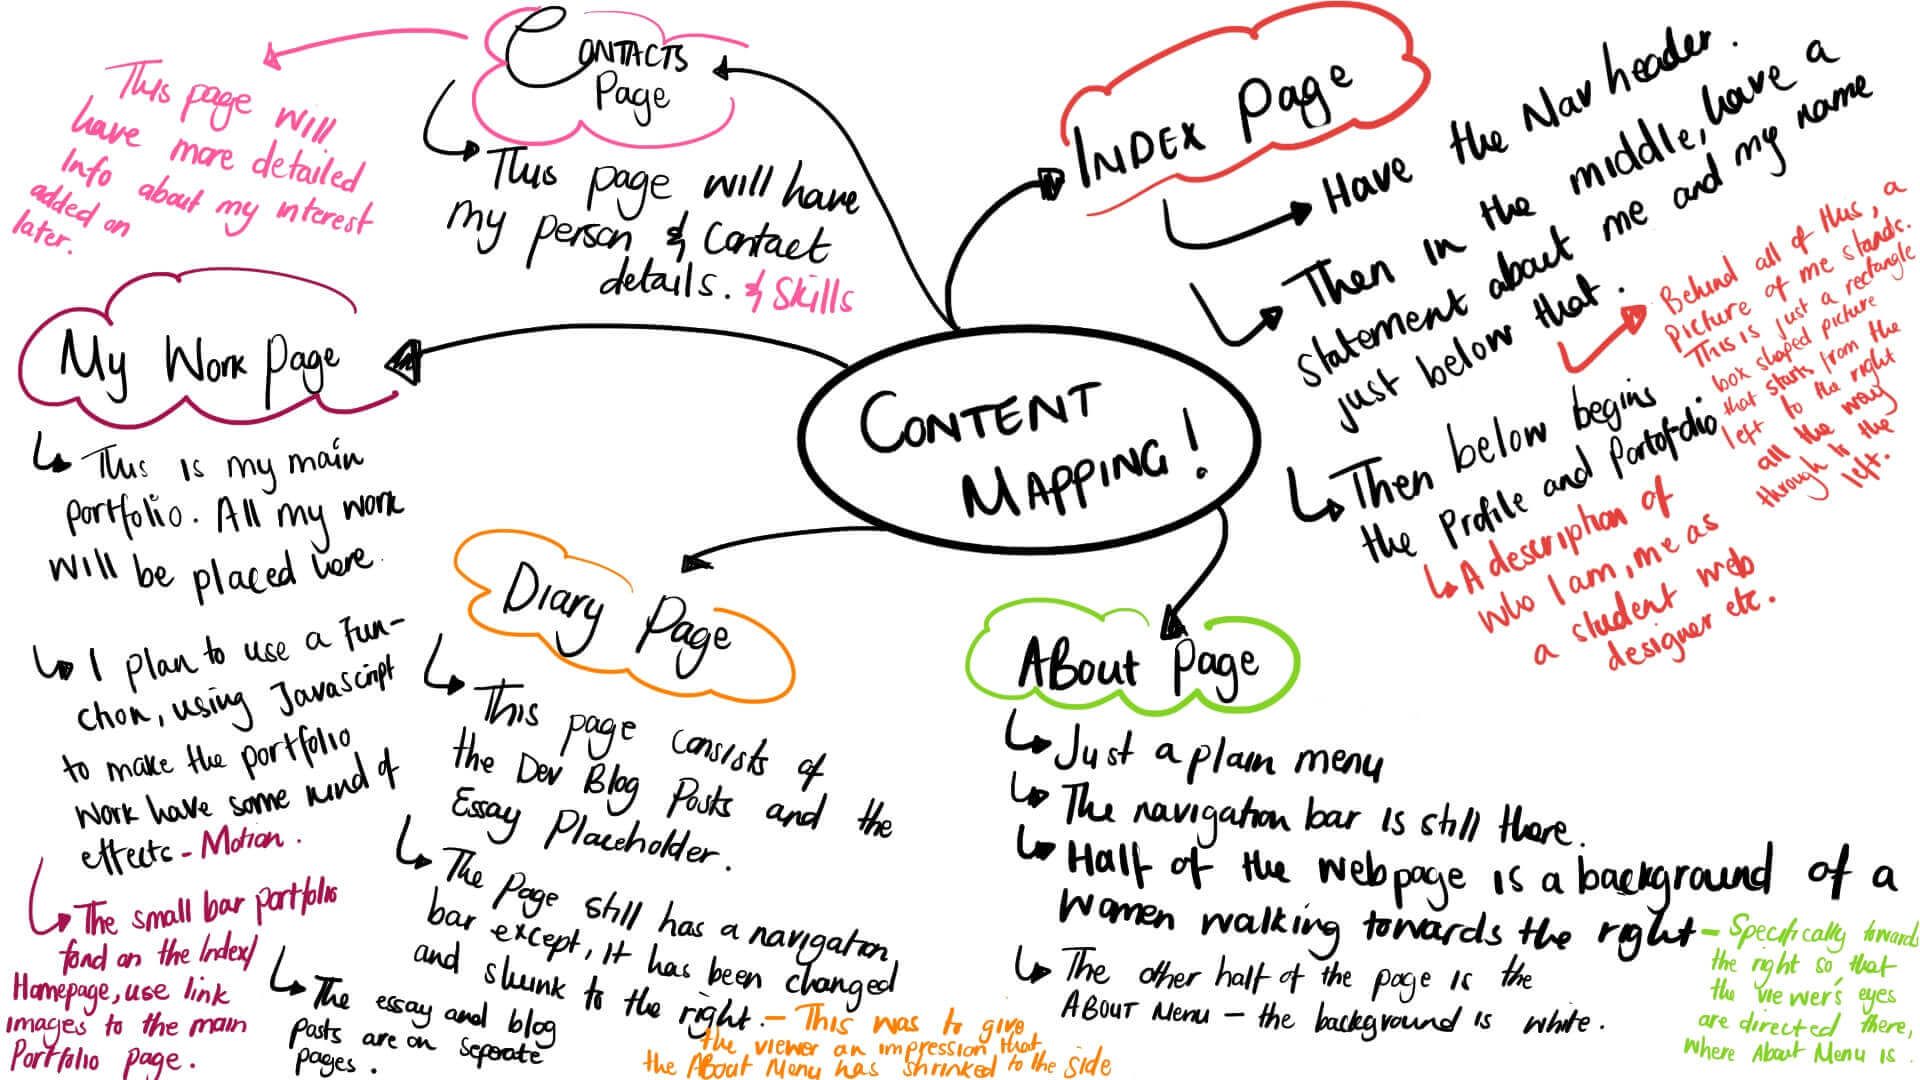 CONTENT
MAPPING!
CONTACTS
Page
This page will have
my person & Contact
details. & Skills
This page will
have more detailed
Info about my interest
added on
later.
INDEX Page
Have the Nav header.
Then in the middle, have a
statement about me and my name
just below that.
Behind all of this, a
picture of me stands.
This is just a rectangle
box shaped picture
that starts from the
left to the right
all the way
through to the
left.
Then below begins
the Profile and Portofolio
A description of
who I am, me as
a student web
designer etc.
My Work page
This is my main
portfolio. All my work
will be placed here.
I plan to use a Fun-
ction, using Javascript
to make the portfolio
work have some kind of
effects - Motion.
The small bar portfolio
fond on the Index/
Homepage, use link
images to the main
Portfolio page.
Diary Page
This page consists of
the Dev Blog Posts and the
Essay Placeholder.
The Page still has a navigation
bar except, it has been changed
and shunk to the right. - This was to give
the viewer an impression that
the About Menu has shrinked to the side
The essay and blog
posts are on seperate
pages.
ABout Page
Just a plain menu
The navigation bar is still there.
Half of the webpage is a background of a
women walking towards the right - Specifically towards
the right so that
the viewer's eyes
are directed there,
where About Menu is.
The other half of the page is the
ABOUT Menu - the background is white.